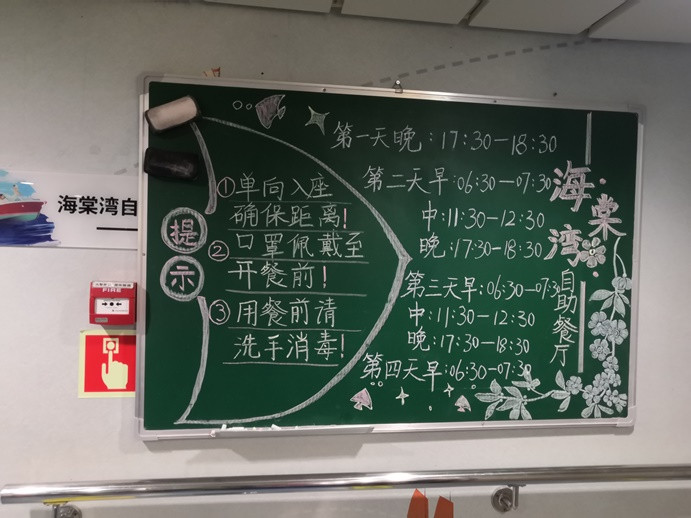 海棠湾自
FIRE
提示
①单向入座
确保距离!
②口罩佩戴至
开餐前!
③用餐前请
洗手消毒!
第一天晚:17:30-18:30
第二天早:06:30-07:30
中:11:30-12:30
晚:17:30-18:30
第三天早:06:30-07:30
中:11:30-12:30
晚:17:30-18:30
第四天早:06:30-07:30
海棠湾
自助餐厅